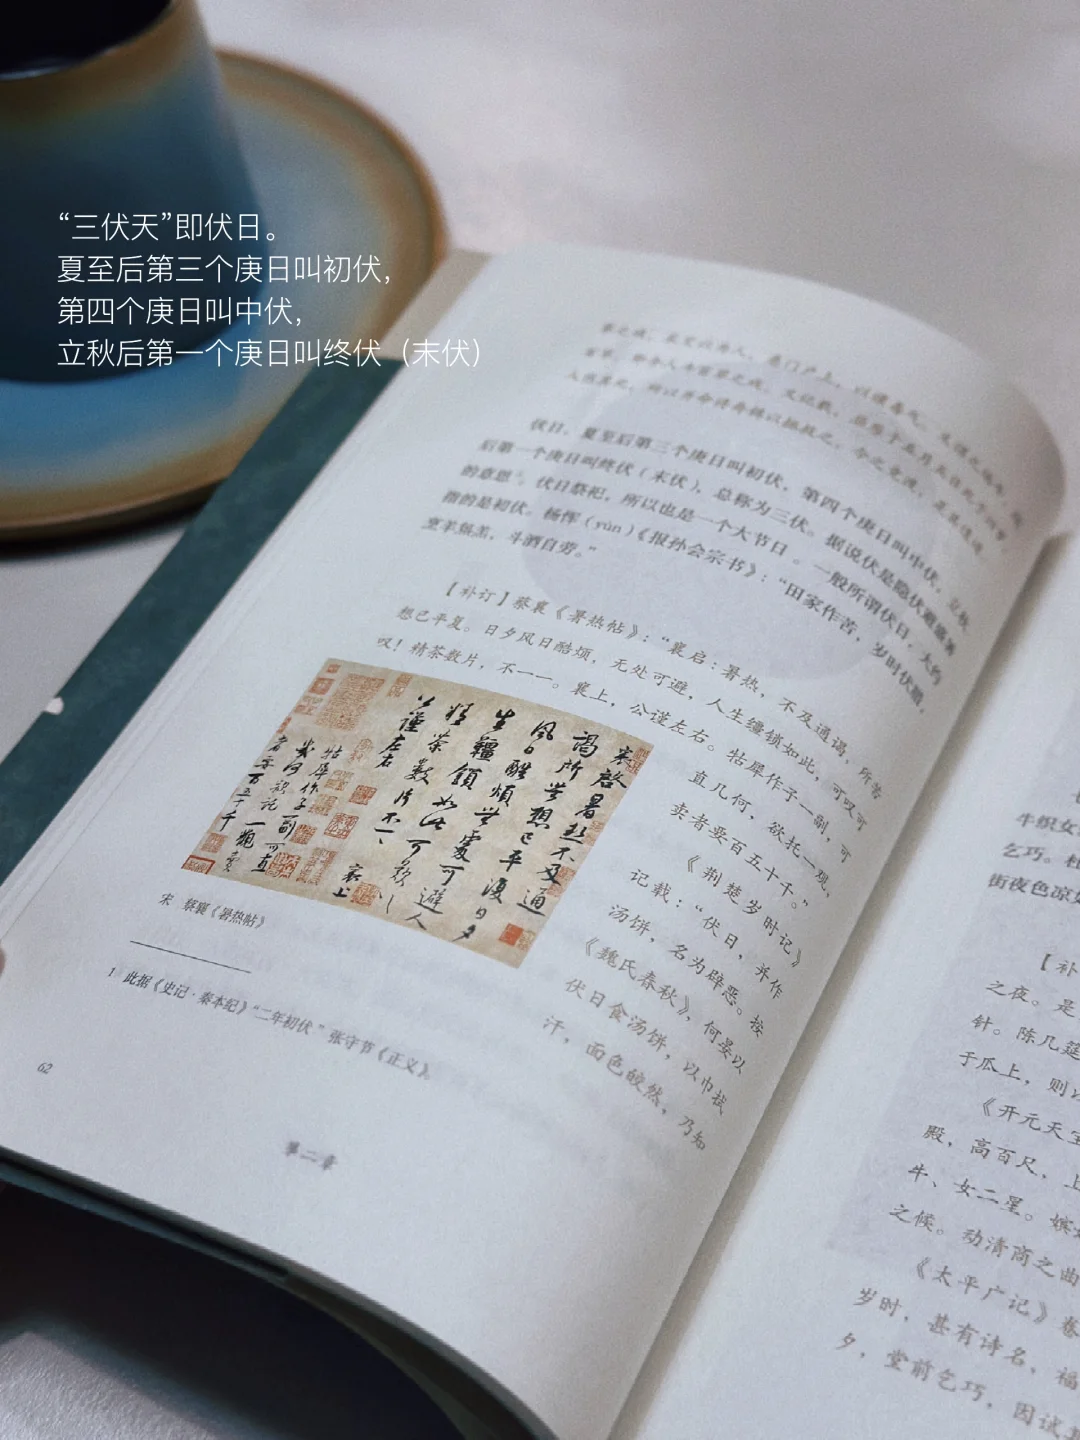 “三伏天”即伏日。
夏至后第三个庚日叫初伏，
第四个庚日叫中伏，
立秋后第一个庚日叫终伏（末伏）
伏日，夏至后第三个庚日叫初伏，第四个庚日叫中伏，立秋
后第一个庚日叫终伏（末伏），总称为三伏。据说伏是隐伏避盛暑
的意思¹。伏日祭祀，所以也是一个大节日。一般所谓伏日，大约
指的是初伏。杨恽（yùn）《报孙会宗书》：“田家作苦，岁时伏腊，
烹羊炰羔，斗酒自劳。”
【补订】蔡襄《暑热帖》：“襄启：暑热，不及通谒，所苦
想已平复。日夕风日酷烦，无处可避，人生缰锁如此，可叹可
叹！精茶数片，不一一。襄上，公谨左右。牯犀作子一副，可
直几何，欲托一观，
卖者要百五十千。”
《荆楚岁时记》
记载：“伏日，并作
汤饼，名为辟恶。按
《魏氏春秋》，何晏以
伏日食汤饼，以巾拭
汗，面色皎然，乃知
襄启暑热不及通
谒所苦想已平复日夕
风日酷烦无处可避人
生缰锁如此可叹
精茶数片不一
襄上
公谨左右
牯犀作子一副可直
几何欲托一观
卖者要百五十千
宋 蔡襄《暑热帖》
1 此据《史记·秦本纪》“二年初伏”张守节《正义》。
62
第二章
牛织女
乞巧。杜
街夜色凉
【补
之夜。是
针。陈几筵
于瓜上，则
《开元天宝
殿，高百尺，上
牛、女二星。嫔
之候。动清商之曲
《太平广记》卷
岁时，甚有诗名，福
夕，堂前乞巧，因试